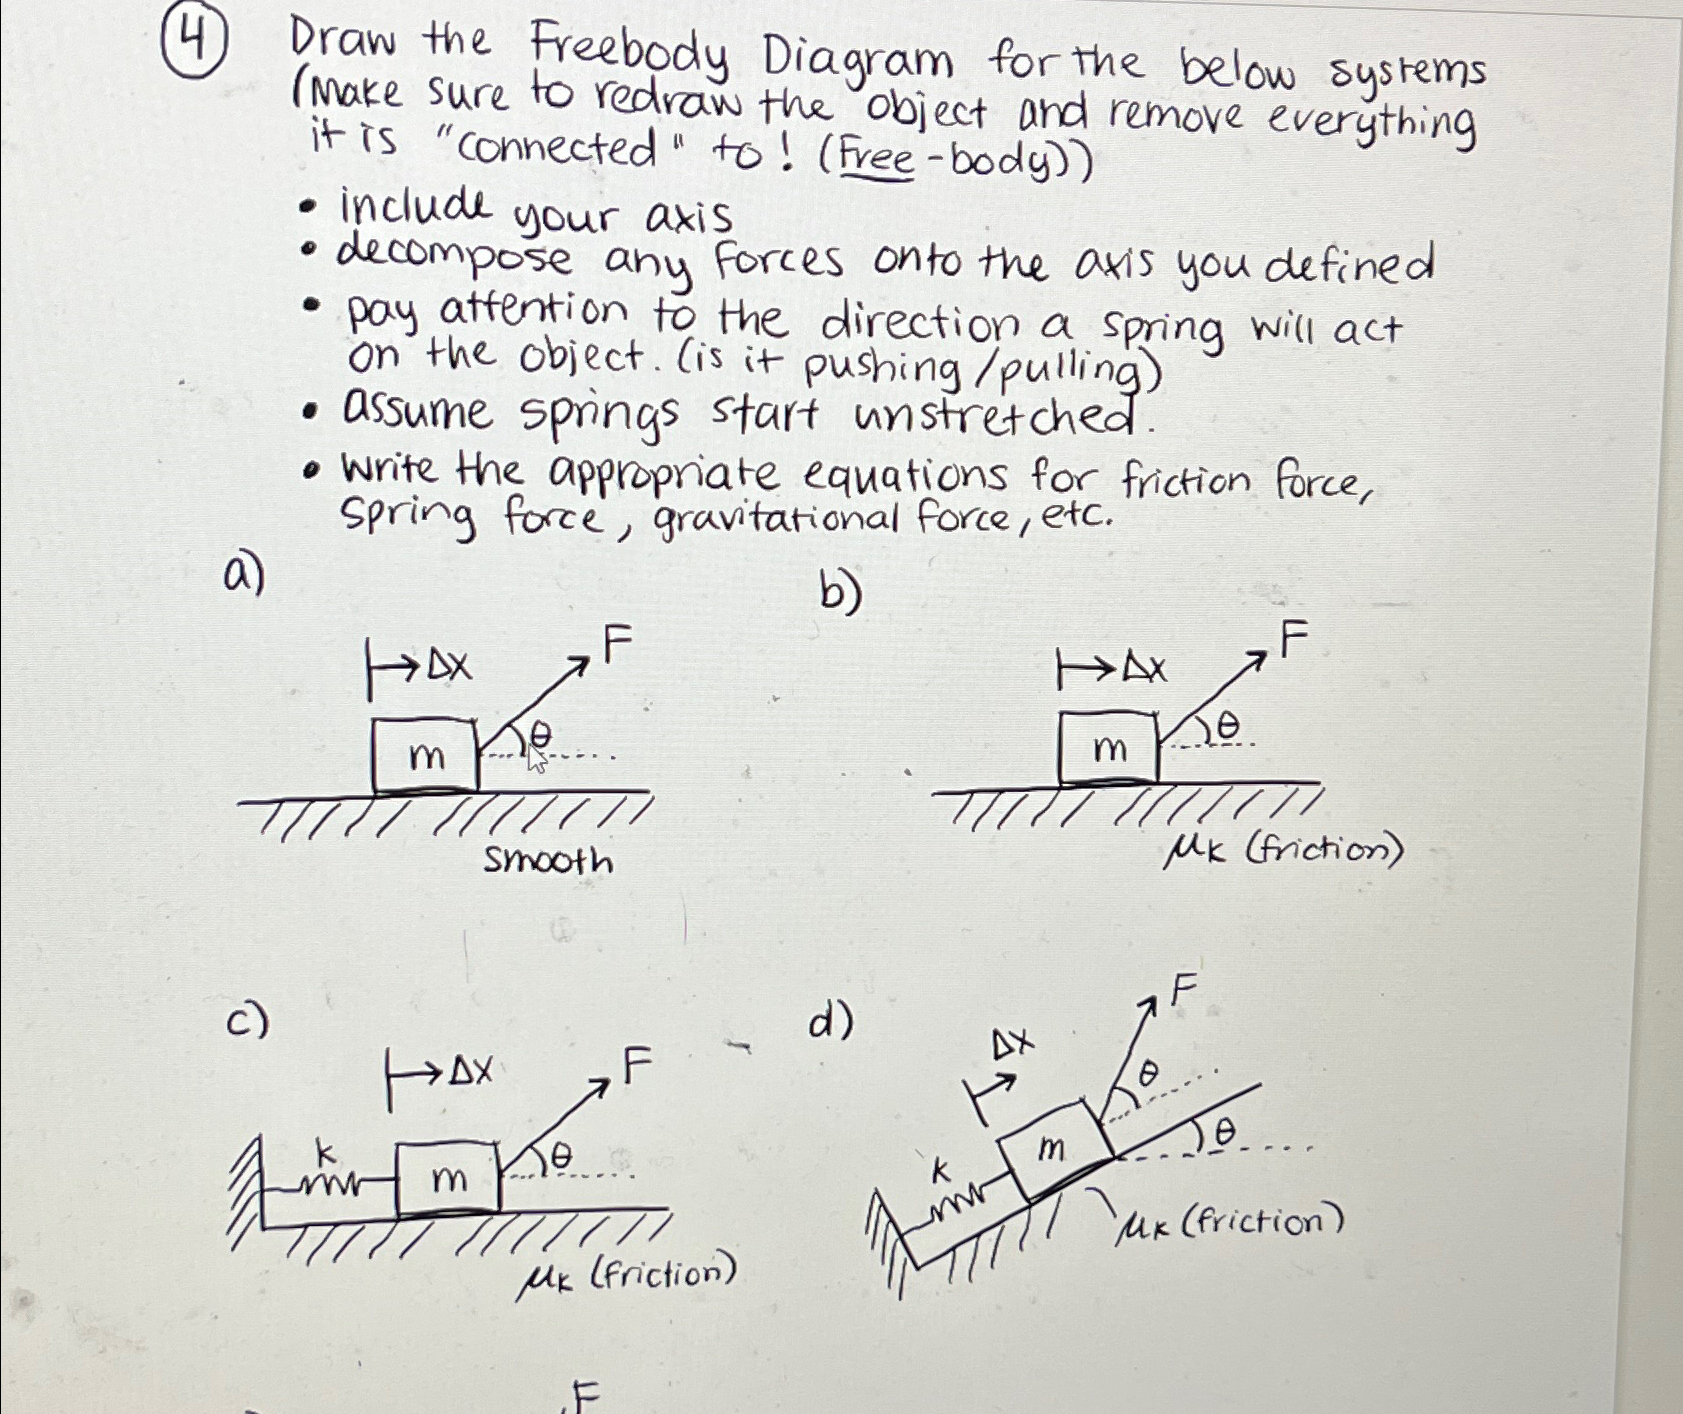 4 Draw the Freebody Diagram for the below systems
(Make sure to redraw the object and remove everything
it is "connected" to! (Free-body))
• include your axis
• decompose any forces onto the axis you defined
• pay attention to the direction a spring will act
on the object. (is it pushing/pulling)
• assume springs start unstretched.
• write the appropriate equations for friction force,
spring force, gravitational force, etc.
a)
b)
Δx F
m θ
smooth
Δx F
m θ
μk (friction)
c)
d)
Δx F
k m θ
μk (friction)
F
Δx
θ
k m θ
μk (friction)
F